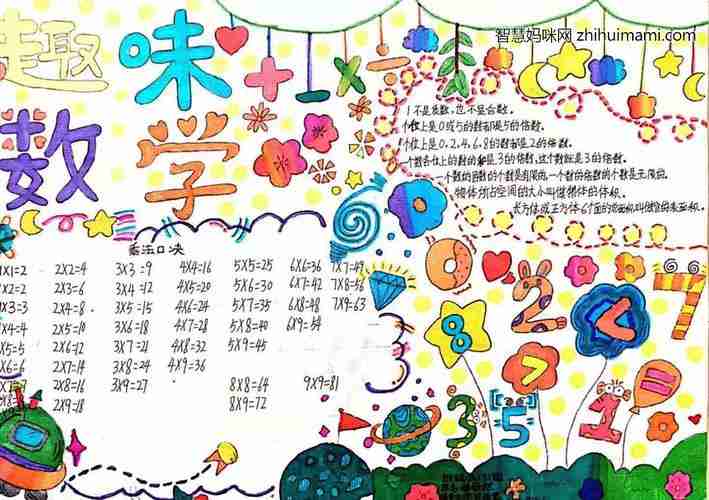 智慧妈咪网 zhihuimami.com
趣味 + - × ÷
数学
1不是质数，也不是合数。
个位上是0或5的数都是5的倍数。
个位上是0、2、4、6、8的数都是2的倍数。
一个数各位上的数的和是3的倍数，这个数就是3的倍数。
一个数的因数的个数是有限的，一个数的倍数的个数是无限的。
物体所占空间的大小叫做物体的体积。
长方体或正方体6个面的总面积叫做它的表面积。
乘法口决
X1=2 2X2=4 3X3=9 4X4=16 5X5=25 6X6=36 7X7=49
X2=2 2X3=6 3X4=12 4X5=20 5X6=30 6X7=42 7X8=56
X3=3 2X4=8 3X5=15 4X6=24 5X7=35 6X8=48 7X9=63
X4=4 2X5=10 3X6=18 4X7=28 5X8=40 6X9=54
X5=5 2X6=12 3X7=21 4X8=32 5X9=45
X6=6 2X7=14 3X8=24 4X9=36
2X8=16 3X9=27 8X8=64 9X9=81
2X9=18 8X9=72
2 < 7
8 7
3 5 1 =